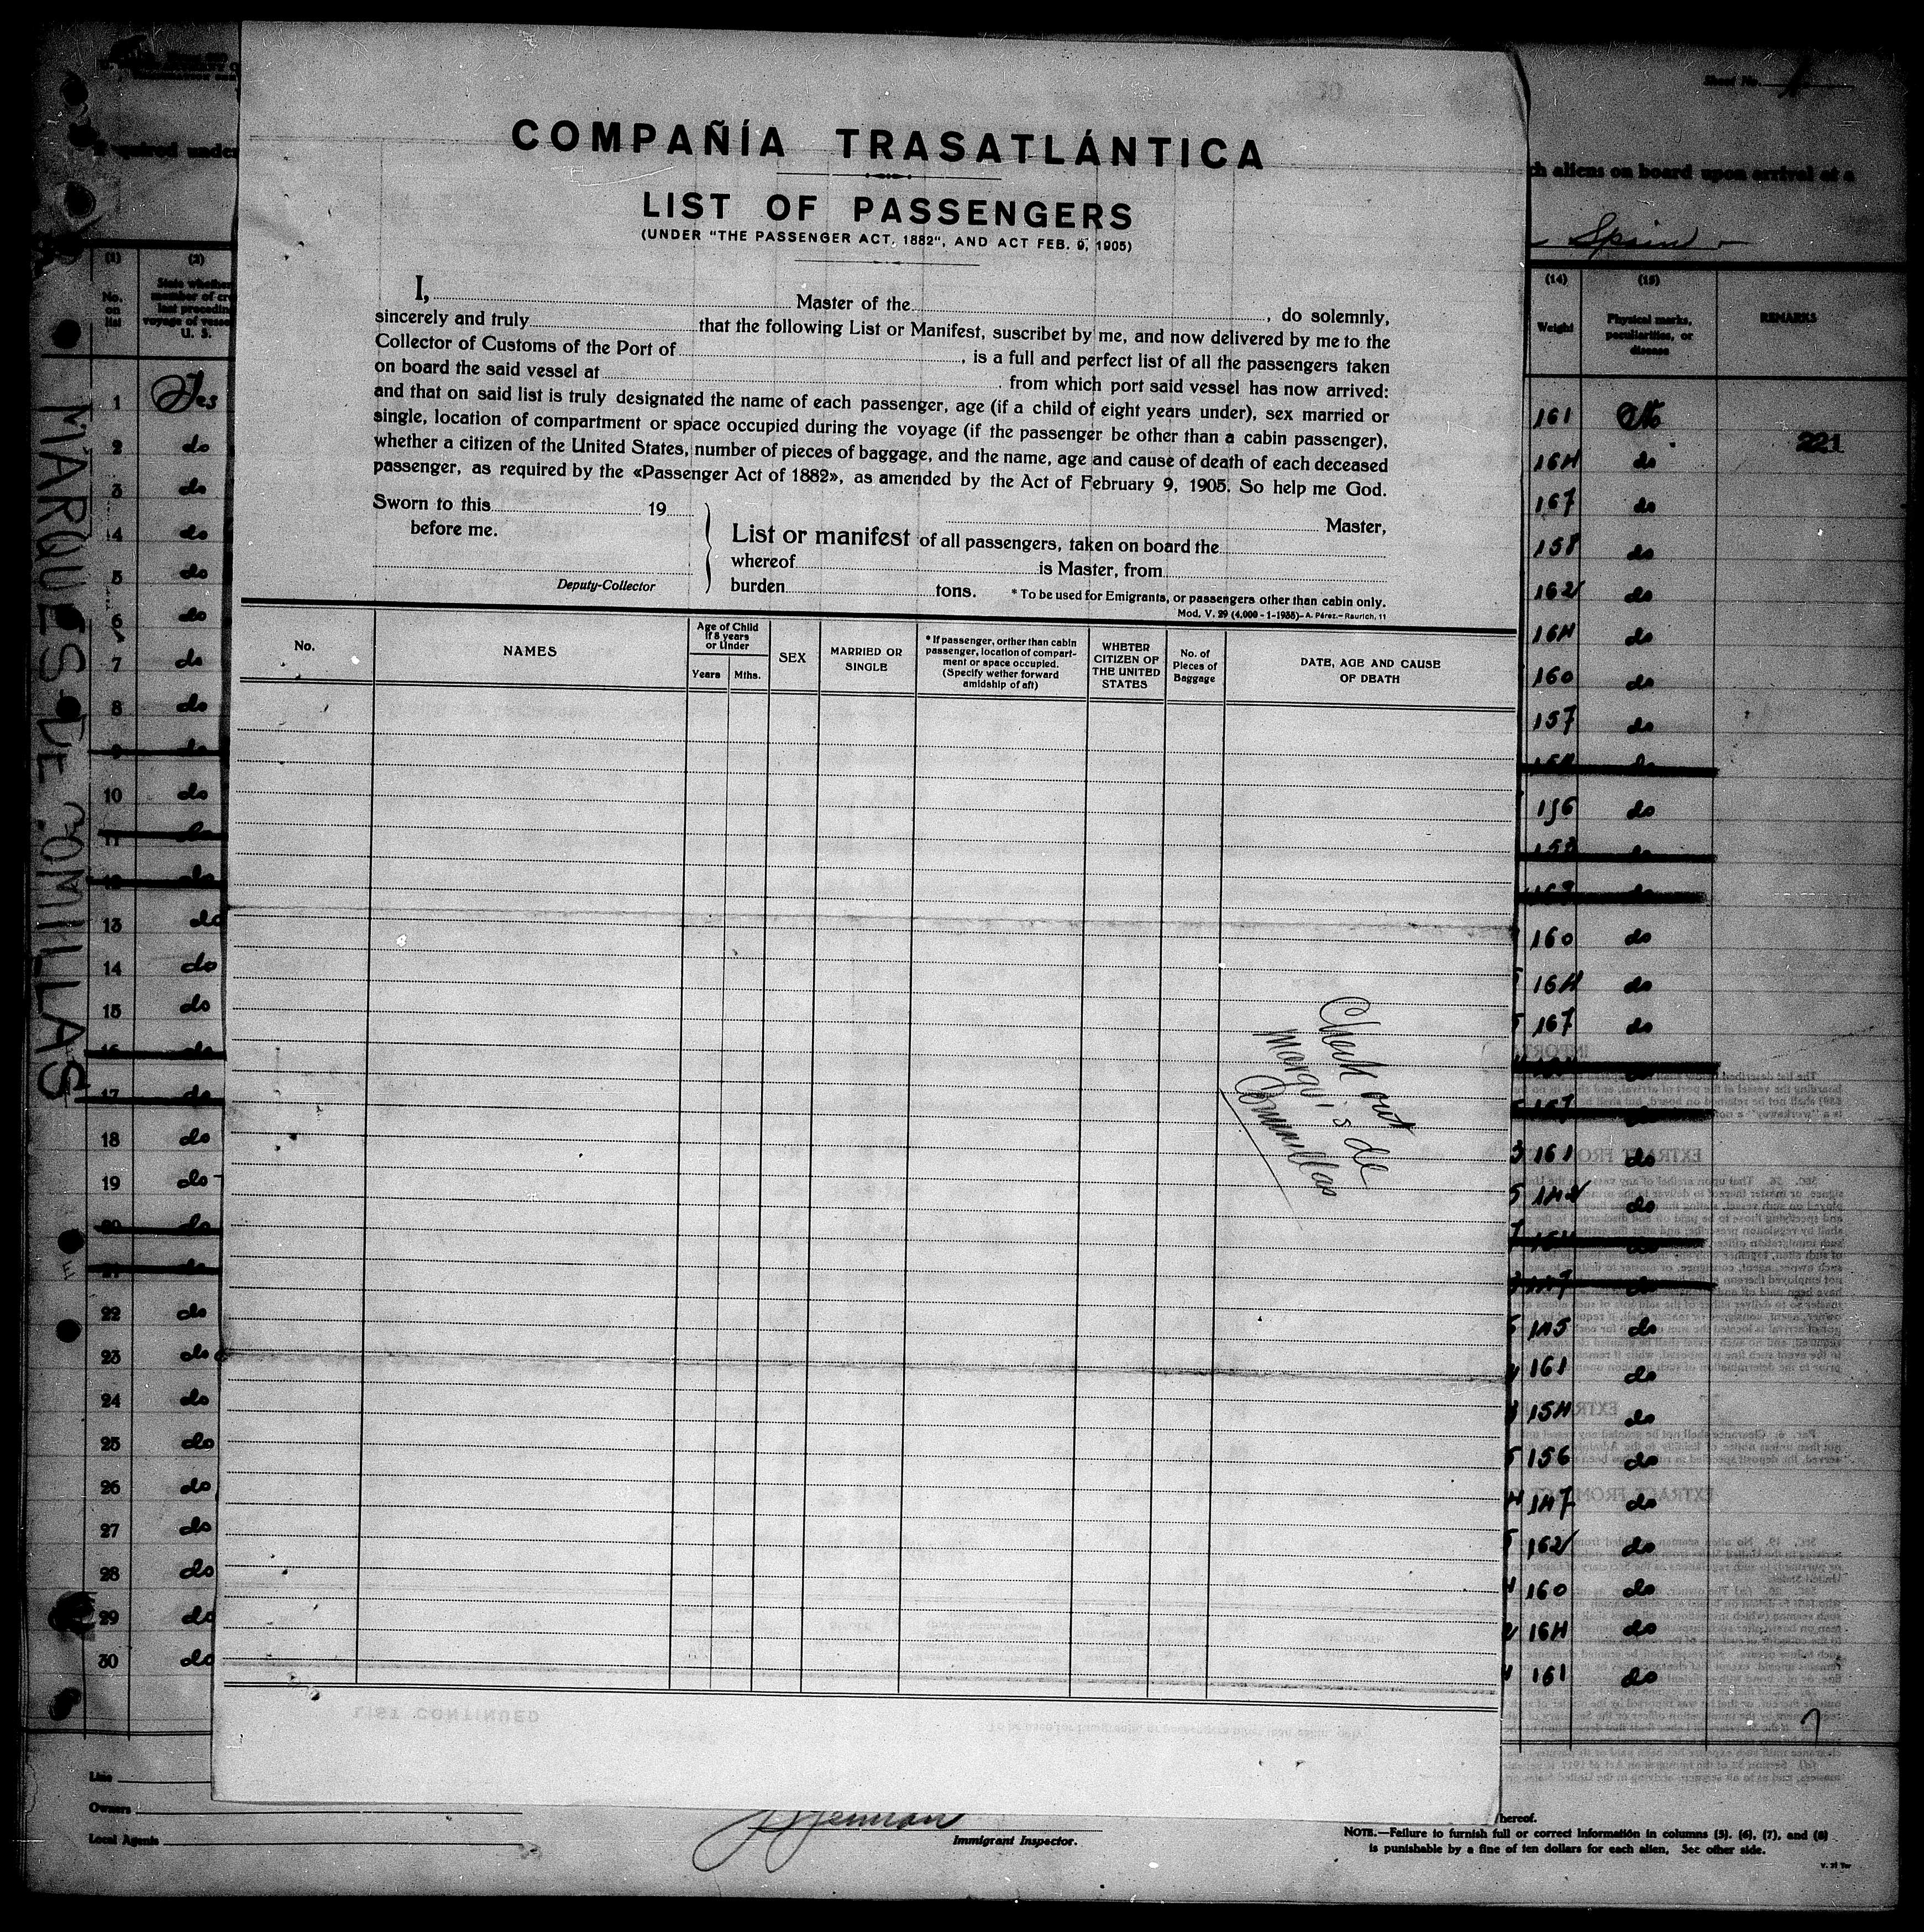 COMPAÑÍA TRASATLÁNTICA
LIST OF PASSENGERS
(UNDER "THE PASSENGER ACT, 1882", AND ACT FEB. 9, 1905)
I, Master of the , do solemnly,
sincerely and truly that the following List or Manifest, suscribet by me, and now delivered by me to the
Collector of Customs of the Port of , is a full and perfect list of all the passengers taken
on board the said vessel at from which port said vessel has now arrived:
and that on said list is truly designated the name of each passenger, age (if a child of eight years under), sex married or
single, location of compartment or space occupied during the voyage (if the passenger be other than a cabin passenger),
whether a citizen of the United States, number of pieces of baggage, and the name, age and cause of death of each deceased
passenger, as required by the «Passenger Act of 1882», as amended by the Act of February 9, 1905. So help me God.
Sworn to this 19
before me.
Deputy-Collector
Master,
List or manifest of all passengers, taken on board the
whereof is Master, from
burden tons. * To be used for Emigrants, or passengers other than cabin only.
Mod. V. 29 (4.000 - 1-1935)- A. Pérez.- Raurich, 11
No.
NAMES
Age of Child
if 8 years
or Under
Years Mths.
SEX
MARRIED OR
SINGLE
* If passenger, orther than cabin
passenger, location of compart-
ment or space occupied.
(Specify wether forward
amidship of aft)
WHETER
CITIZEN OF
THE UNITED
STATES
No. of
Pieces of
Baggage
DATE, AGE AND CAUSE
OF DEATH
Check out
Marqu's de
Commillas
MARQUES DE COMILLAS
quired under
(1)
No.
on
list
(2)
State whether
member of cre
last preceding
voyage of vesse
U. S.
1 Yes
2 do
3 do
4 do
5 do
6 do
7 do
8 do
9 do
10 do
11 do
12 do
13 do
14 do
15 do
16 do
17 do
18 do
19 do
20 do
21 do
22 do
23 do
24 do
25 do
26 do
27 do
28 do
29 do
30 do
Sheet No. 1
ch aliens on board upon arrival at a
Spain
(14)
Weight
(15)
Physical marks,
peculiarities, or
disease
REMARKS
161
221
164 do
167 do
158 do
162 do
164 do
160 do
157 do
do
156 do
158 do
163 do
160 do
164 do
167 do
157
161 do
142 do
154 do
147 do
145 do
161 do
154 do
156 do
147 do
162 do
160 do
164 do
161 do
7
Line
Owners
Local Agents
Immigrant Inspector.
hereof.
NOTE.—Failure to furnish full or correct information in columns (5), (6), (7), and (8)
is punishable by a fine of ten dollars for each alien. See other side.
LIST CONTINUED